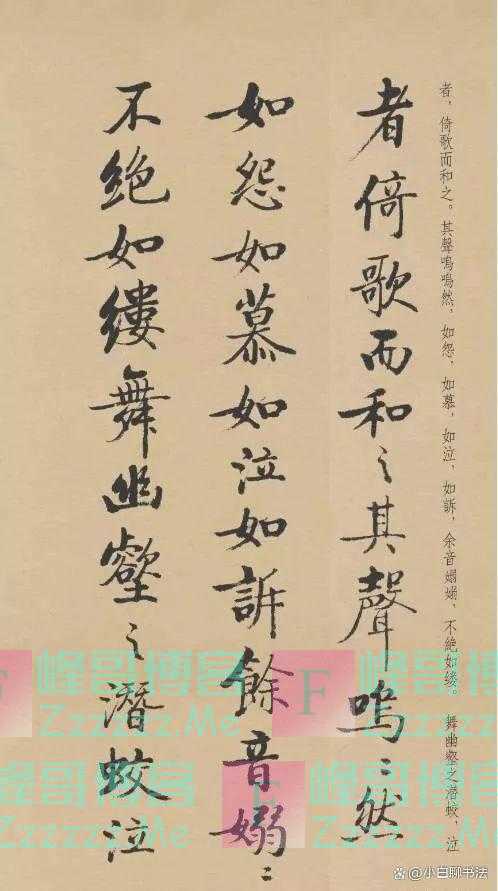 者，倚歌而和之。其聲嗚嗚然，如怨，如慕，如泣，如訴，余音嫋嫋，不絕如缕。舞幽壑之潜蛟，泣
者倚歌而和之其聲嗚〻然
如怨如慕如泣如訴餘音嫋〻
不絕如縷舞幽壑之潛蛟泣
F 峰哥博客
Zzzzzz.Me
F 峰哥博客
Zzzzzz.Me
F 峰哥博客
Zzzzzz.Me
F 峰哥博客
Zzzzzz.Me
@小白聊书法